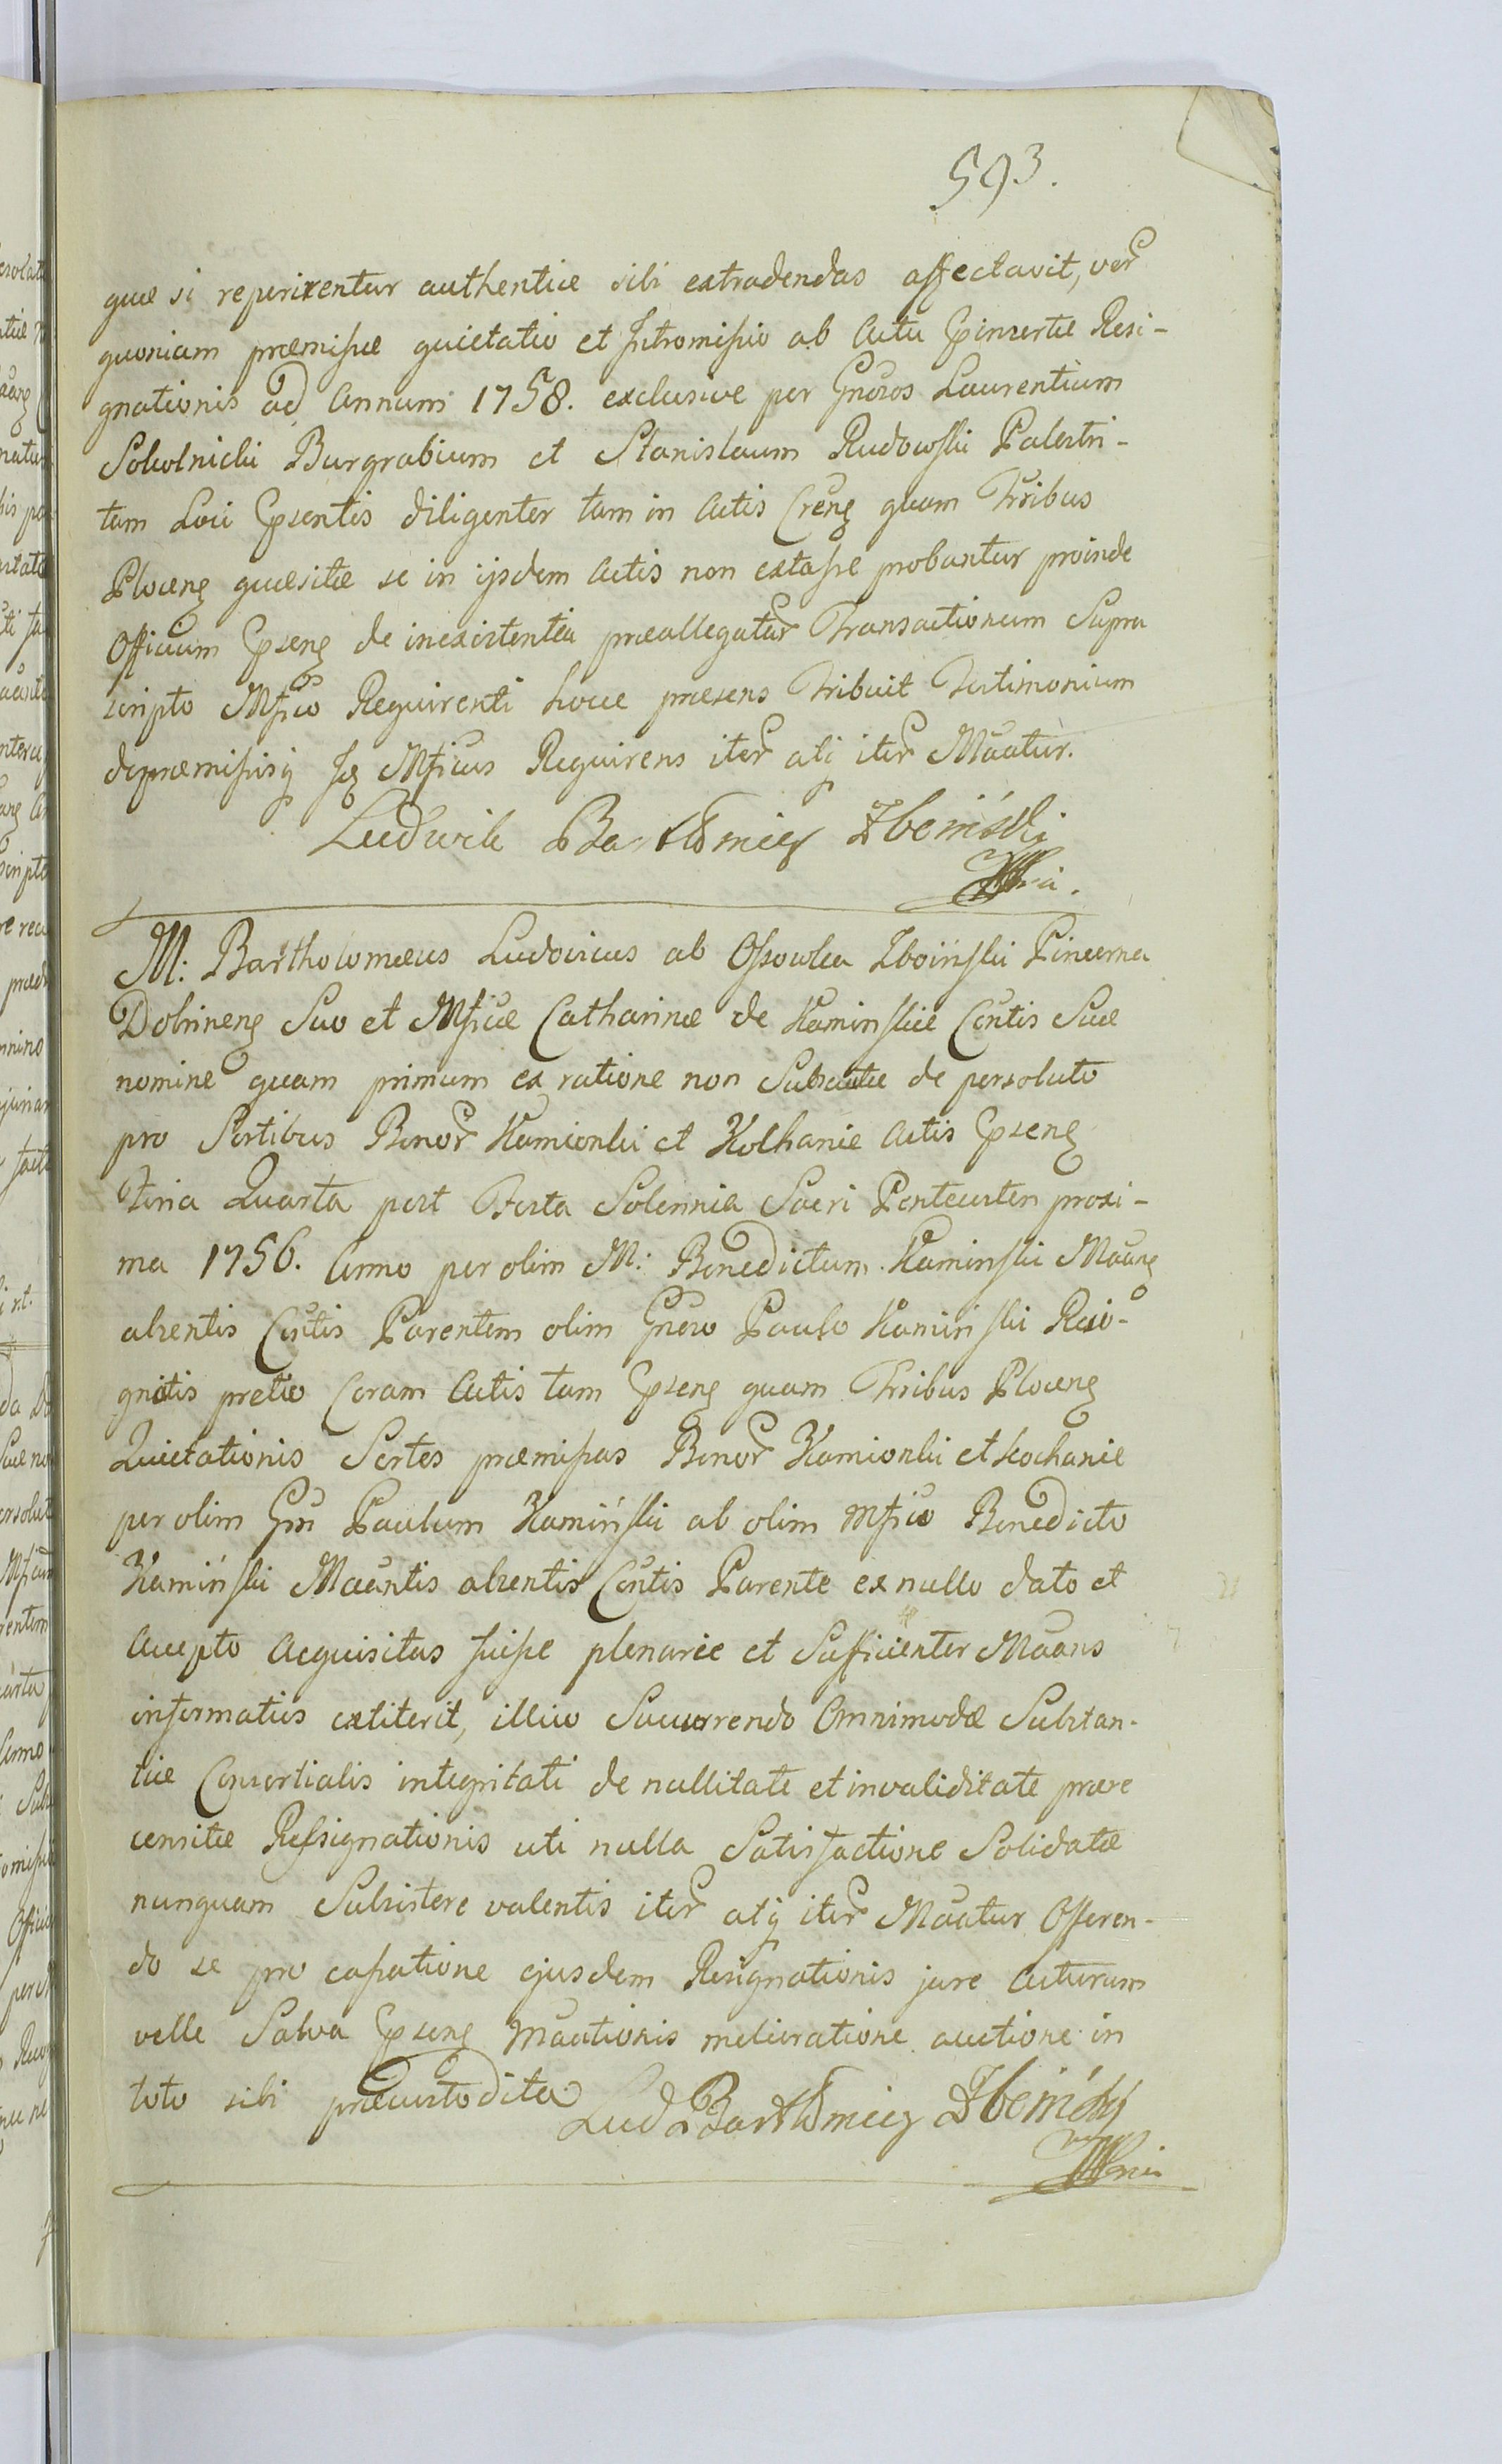 593.
quæ si reperirentur authentice sibi extradendas affectavit, ver
quoniam præmissæ quietatio et Intromissio ab Actu Epinsertæ Resi-
gnationis ad Annum 1758. exclusive per Gnosos Laurentium
Sokolnicki Burgrabium et Stanislaum Rudowski Palestri-
tam Loci Epsentis diligenter tam in Actis Creng quam Trribus
Ploceng quæsitæ se in ijsdem Actis non extasse probantur proinde
Officium Epseng de inexistentia præallegatar Transactionum Supra
scripto Mfico Requirenti hocce præsens Tribuit Testimonium
depræmissisq Mficus Requirens iter atq iter Maatur.
Ludwik Bartłomiey Zboiński
M: Bartholomæus Ludovicus ab Ossowka Zboiński Pincerna
Dobrineng Suo et Mficæ Catharinæ de Kaminskie Contis Suæ
nomine quam primum ex ratione non Subsecutæ de persoluto
pro Sortibus Bonor Kamionki et Kochanie Actis Epseng
Feria Quarta post Festa Solennia Sacri Pentecosten proxi-
ma 1756. Anno per olim M: Benedictum Kaminski Maang
absentis Contis Parentem olim Gnoso Paulo Kaminski Reco-
gnitis pretio Coram Actis tam Epseng quam Trribus Ploceng
Quietationis Sortes præmissas Bonor Kamionki et Kochanie
per olim Gm Paulum Kamiński ab olim Mfico Benedicto
Kamiński Maantis absentis Contis Parente ex nullo dato et
Accepto Acquisitas fuisse plenarie et Sufficienter Maans
informatus extiterit, illico Succurrendo Omnimodæ Substan-
tiæ Consortialis integritati de nullitate et invaliditate prære
censitæ Ressignationis uti nulla Satisfactione Solidatæ
nunquam Subsistere valentis iter atq iter Maatur Offeren-
do se pro cassatione ejusdem Resignationis jure Acturum
velle Salva Epseng Maationis melioratione auctione in
toto sibi præcustodita
Lud Bartłomiey Zboiński